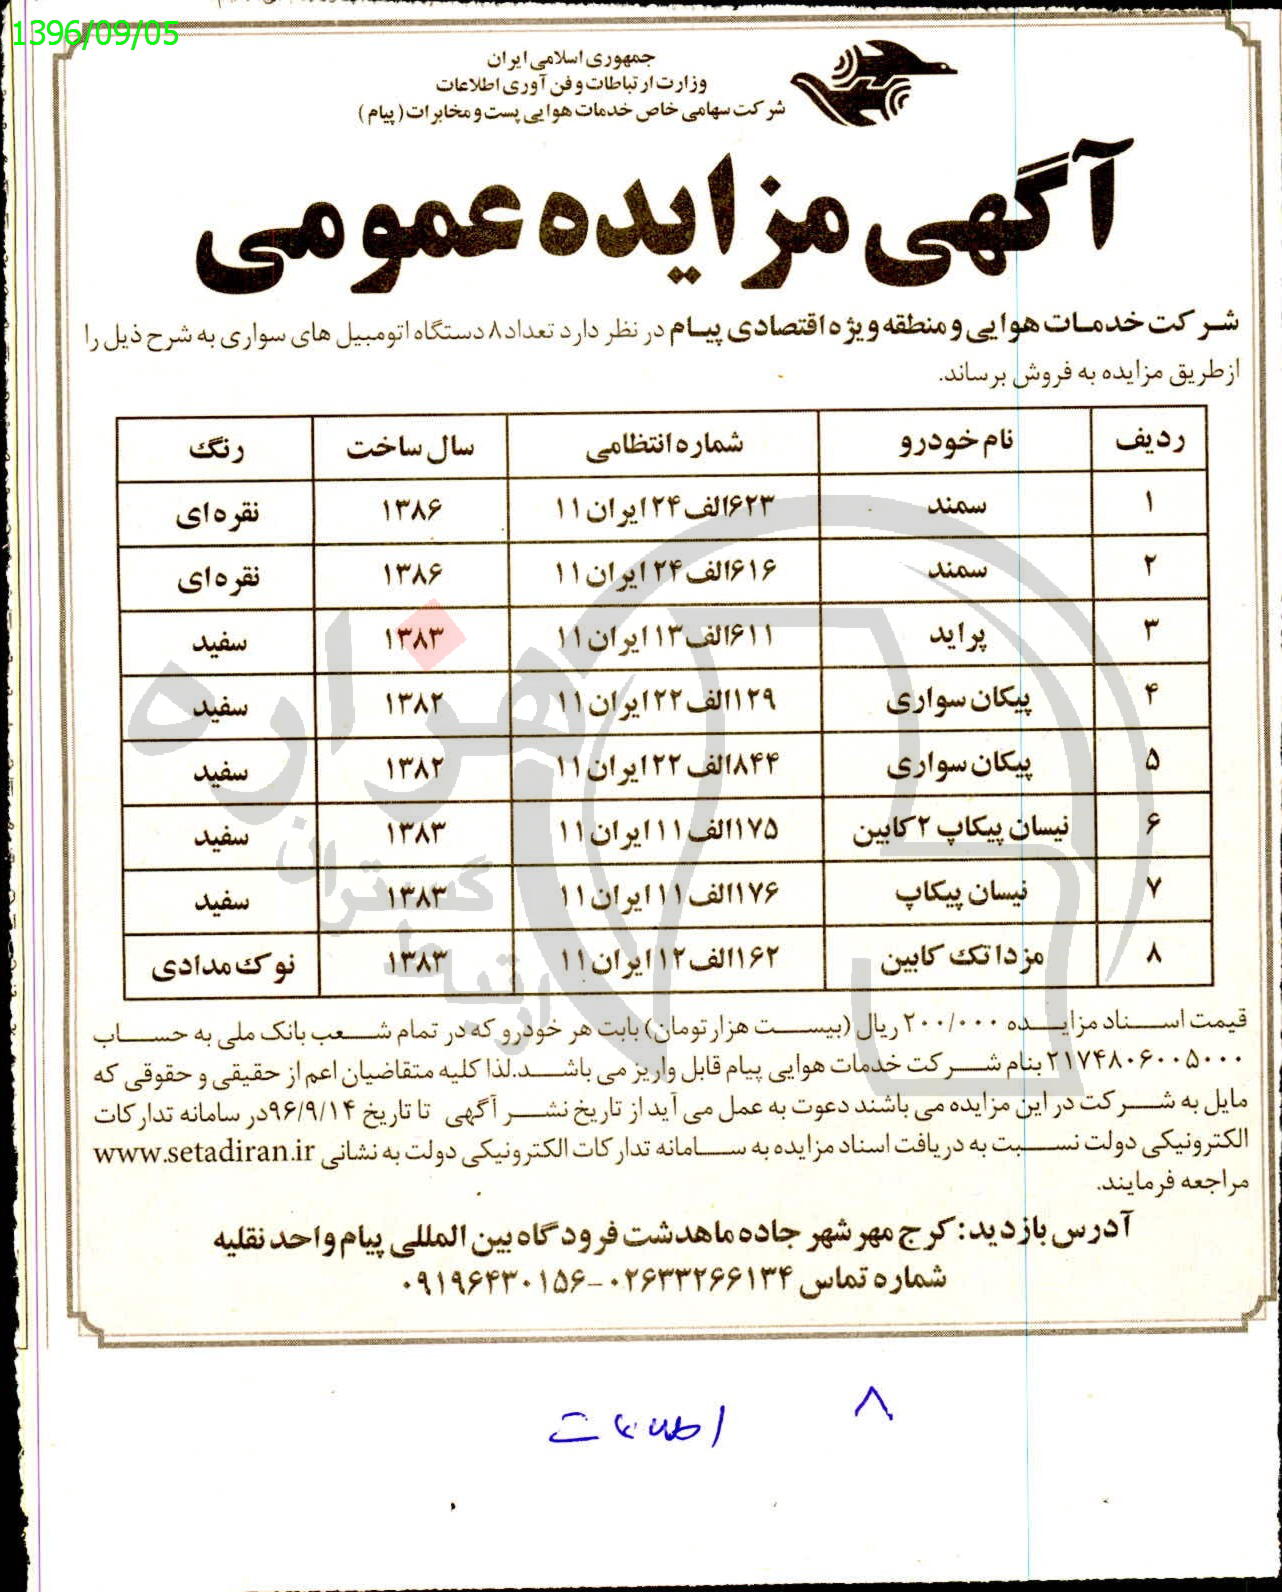 1396/09/05
جمهوری اسلامی ایران
وزارت ارتباطات و فن آوری اطلاعات
شرکت سهامی خاص خدمات هوایی پست و مخابرات (پیام)
آگهی مزایده عمومی
شرکت خدمات هوایی و منطقه ویژه اقتصادی پیام در نظر دارد تعداد ۸ دستگاه اتومبیل های سواری به شرح ذیل را
از طریق مزایده به فروش برساند.
ردیف نام خودرو شماره انتظامی سال ساخت رنگ
۱ سمند ۶۲۳الف۲۴ ایران ۱۱ ۱۳۸۶ نقره ای
۲ سمند ۶۱۶الف۲۴ ایران ۱۱ ۱۳۸۶ نقره ای
۳ پراید ۶۱۱الف۱۳ ایران ۱۱ ۱۳۸۳ سفید
۴ پیکان سواری ۱۲۹الف۲۲ ایران ۱۱ ۱۳۸۲ سفید
۵ پیکان سواری ۸۴۴الف۲۲ ایران ۱۱ ۱۳۸۲ سفید
۶ نیسان پیکاپ ۲ کابین ۱۷۵الف۱۱ ایران ۱۱ ۱۳۸۳ سفید
۷ نیسان پیکاپ ۱۷۶الف۱۱ ایران ۱۱ ۱۳۸۳ سفید
۸ مزدا تک کابین ۱۶۲الف۱۲ ایران ۱۱ ۱۳۸۳ نوک مدادی
قیمت اسناد مزایده ۲۰۰/۰۰۰ ریال (بیست هزار تومان) بابت هر خودرو که در تمام شعب بانک ملی به حساب
۲۱۷۴۸۰۶۰۰۵۰۰۰ بنام شرکت خدمات هوایی پیام قابل واریز می باشد. لذا کلیه متقاضیان اعم از حقیقی و حقوقی که
مایل به شرکت در این مزایده می باشند دعوت به عمل می آید از تاریخ نشر آگهی تا تاریخ ۹۶/۹/۱۴ در سامانه تدارکات
الکترونیکی دولت نسبت به دریافت اسناد مزایده به سامانه تدارکات الکترونیکی دولت به نشانی www.setadiran.ir
مراجعه فرمایند.
آدرس بازدید: کرج مهرشهر جاده ماهدشت فرودگاه بین المللی پیام واحد نقلیه
شماره تماس ۰۲۶۳۳۲۶۶۱۳۴-۰۹۱۹۶۴۳۰۱۵۶
۸ اطلاعات
هزاره